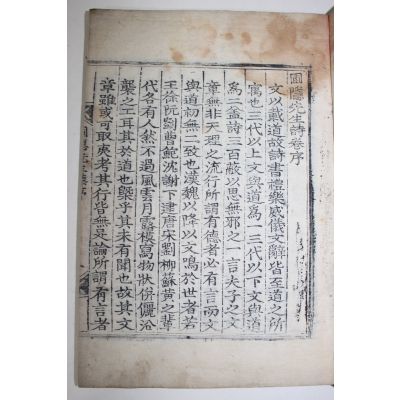 圃隱先生詩卷序
文以載道故詩書禮樂威儀文辭皆至道之所
寓也三代以上文與道爲一三代以下文與道
爲二盖詩三百蔽以思無邪之一言夫子之文
章無非天理之流行所謂有德者必有言而文
與道初無一致也漢魏以降以文鳴於世者若
王徐阮劉曹鮑沈謝下逮唐宋劉柳蘇黃之輩
代各有人然不過風雲月露模寫物狀併儷沿
襲之工耳其於道也槩乎其未有聞也故其文
章雖或可取夷考其行皆無是論所謂有言者